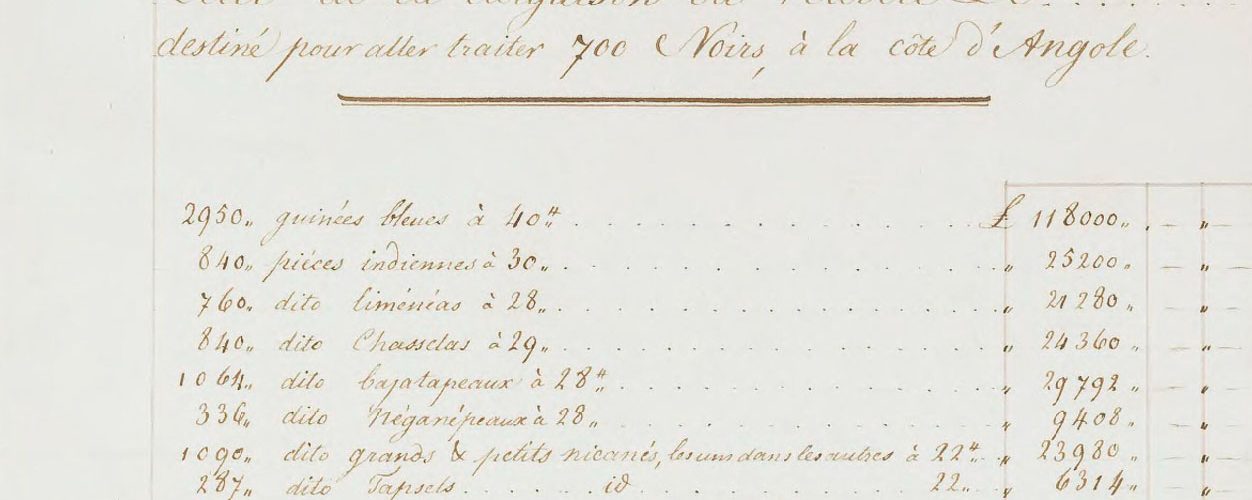 de la Cargaison du
destiné pour aller traiter 700 Noirs, à la côte d'Angole.
2950,, guinées bleues à 40ᵗᵗ . . . . . . . . . . ₶ 118000,, . — ,, —
840,, piéces indiennes à 30,, . . . . . . . . . . ,, 25200,, — ,, —
760,, dito liménéas à 28,, . . . . . . . . . . ,, 21280,, — ,, —
840,, dito Chasselas à 29,, . . . . . . . . . . ,, 24360,, — ,, —
1064,, dito bajatapeaux à 28ᵗᵗ . . . . . . . . . . ,, 29792,, — ,, —
336,, dito Néganépeaux à 28,, . . . . . . . . . . ,, 9408,, — ,, —
1090,, dito grands & petits nicanés, les uns dans les autres à 22ᵗᵗ . . ,, 23980,, — ,, —
287,, dito Tapsels . . . . . . id . . . . . . 22,, . . ,, 6314,, — ,, —